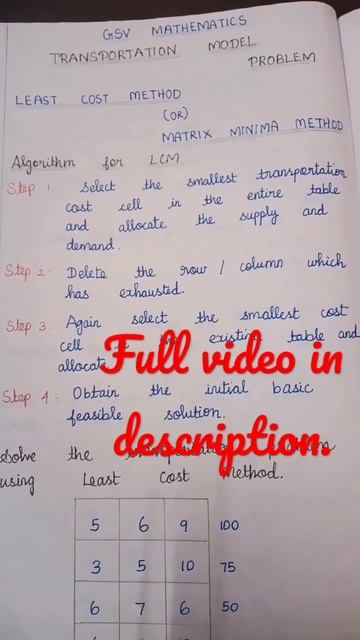 GSV MATHEMATICS
TRANSPORTATION MODEL
PROBLEM
LEAST COST METHOD
(OR)
MATRIX MINIMA METHOD
Algorithm for LCM
Step 1: Select the smallest transportation
cost cell in the entire table
and allocate the supply and
demand.
Step 2: Delete the row / column which
has exhausted.
Step 3: Again select the smallest cost
cell the existing table and
allocate
Full video in
description.
Step 4: Obtain the initial basic
feasible solution.
Solve the
using Least Cost Method.
5 6 9 100
3 5 10 75
6 7 6 50